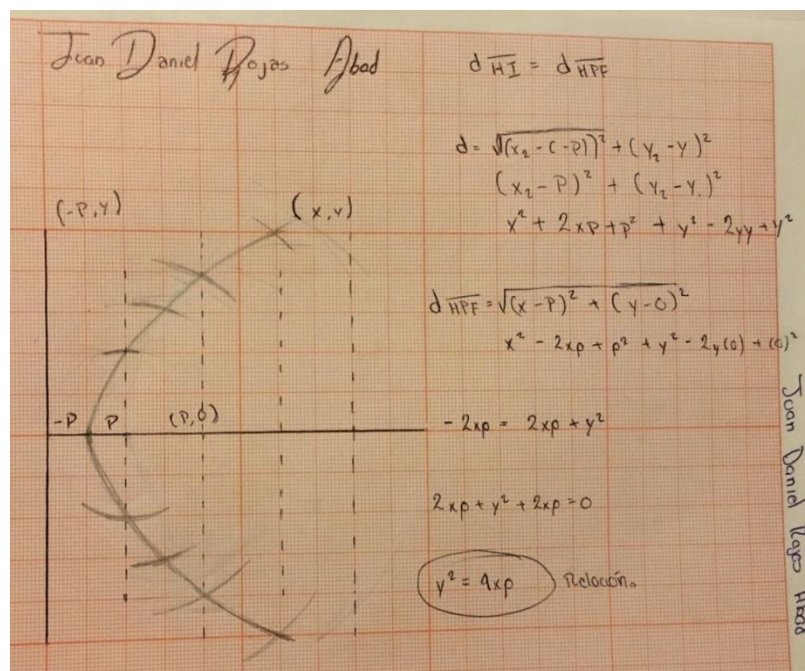 Juan Daniel Rojas Abad
(-P,Y)
(x,y)
-P P (P,0)
d HI = d HPF
d = √(x₂-(-P))² + (y₂-y)²
(x₂-P)² + (y₂-y.)²
x² + 2xp + p² + y² - 2yy + y²
d HPF = √(x-P)² + (y-0)²
x² - 2xp + p² + y² - 2y(0) + (0)²
- 2xp = 2xp + y²
2xp + y² + 2xp = 0
y² = 4xp Relación.
Juan Daniel Rojas Abad